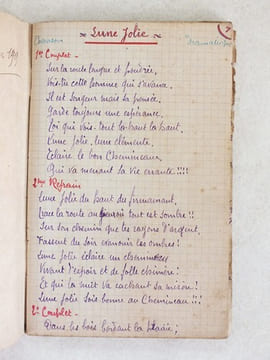 Lune Jolie
Chanson
1er Couplet
Sur la route longue et poudrée,
Vois-tu cet homme qui s'avance,
Il est songeur mais sa pensée,
Garde toujours une espérance,
Toi qui vois tout là-haut là-haut,
Lune jolie, lune clémente,
Éclaire le bon Chemineau,
Qui va menant sa Vie errante !!!!
Refrain
Lune jolie du haut du firmament,
la route tout est sombre !!
Sur son chemin que tes rayons d'argent,
Fassent du soir évanouir les ombres !
Lune jolie éclaire un chemineau
Vivant d'espoir et de folle chimère :
Et qui la nuit va cachant sa misère !
Lune jolie sois bonne au Chemineau !!!
2e Couplet
Dans les bois bordant la plaine ;